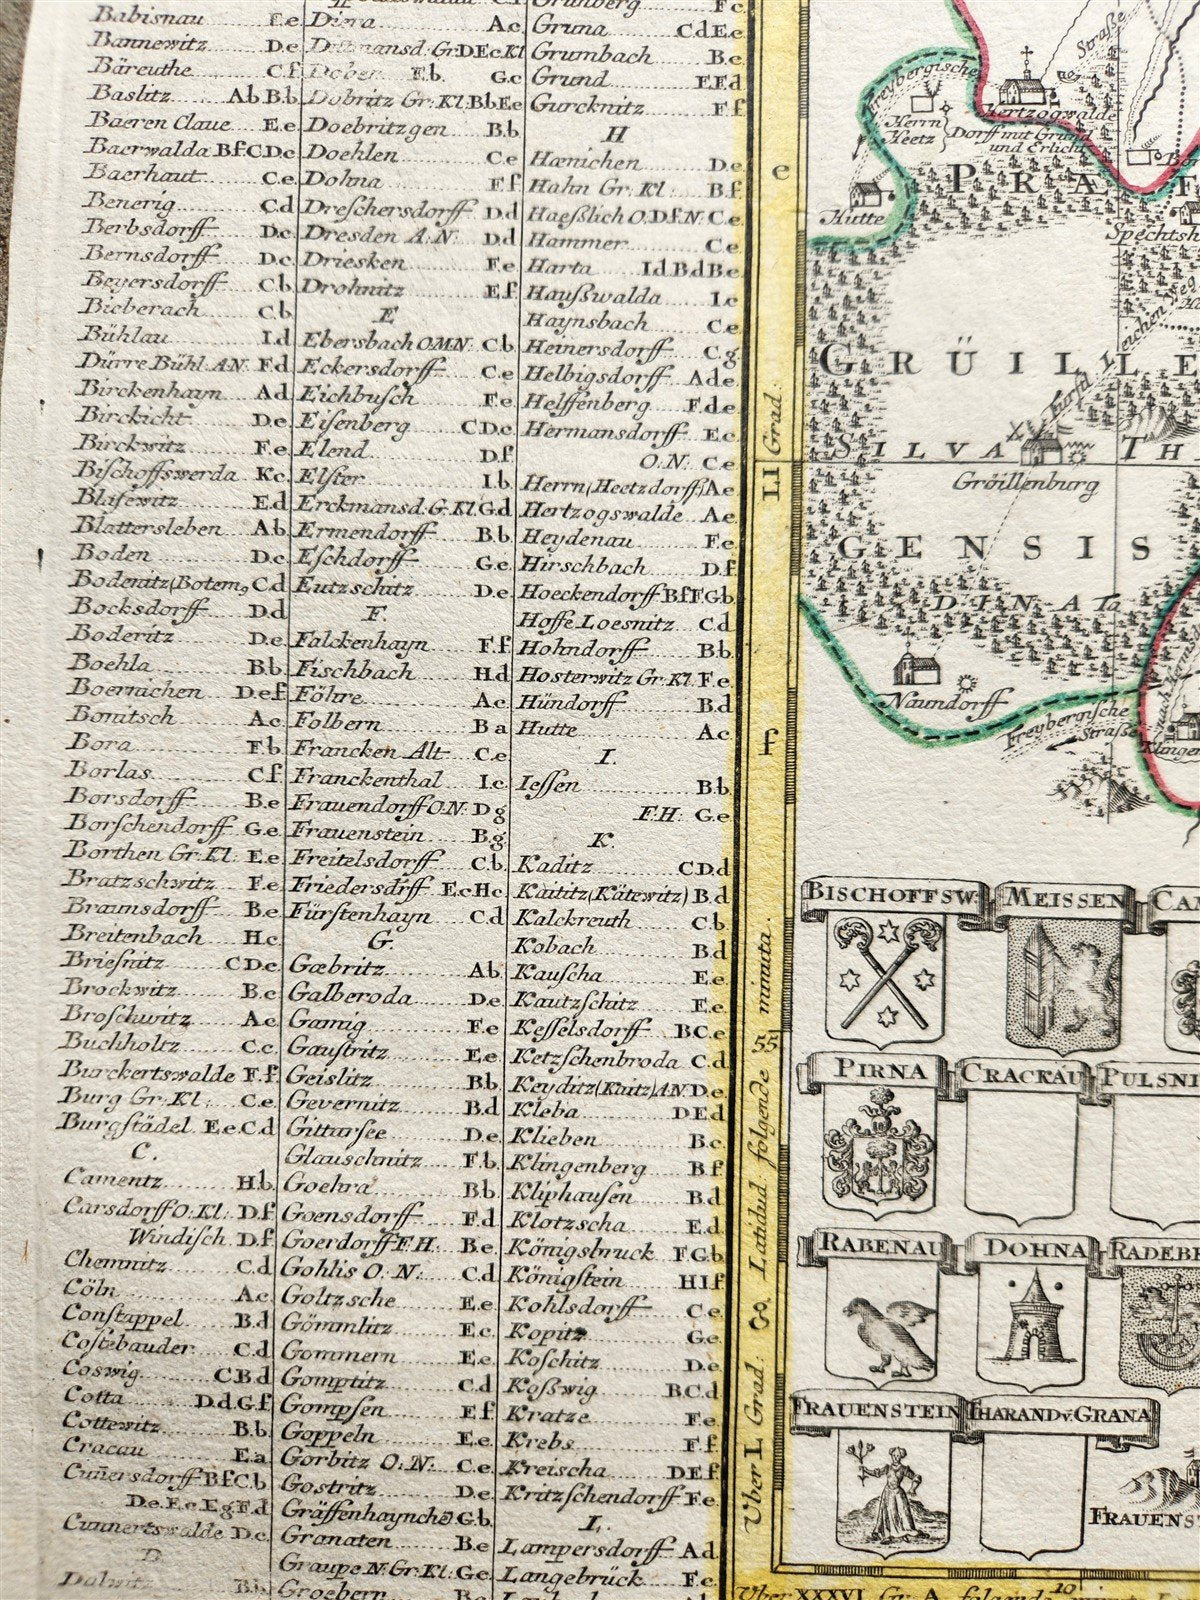 Babisnau F.e
Bannewitz D.e
Bäreuthe C.f
Baslitz A.b B.b
Baeren Claue E.e
Baerwalda B.f C.D.c
Baerhaut C.e
Benerig C.d
Berbsdorff D.c
Bernsdorff D.c
Beyersdorff C.b
Bieberach C.b
Bühlau I.d
Dürre Bühl. A.N. F.d
Birckenhayn A.d
Birckicht D.e
Birckwitz F.e
Bischoffswerda K.c
Blasewitz E.d
Blattersleben A.b
Boden D.c
Bodenitz (Botem, C.d
Bocksdorff D.d
Boderitz D.e
Boehla B.b
Boernichen D.e.f
Bonitsch A.c
Bora F.b
Borlas C.f
Borsdorff B.e
Borschendorff G.e
Borthen Gr. Kl: E.e
Bratzschwitz F.e
Braunsdorff B.e
Breitenbach H.c
Briesnitz C D.e
Brockwitz B.c
Broschwitz A.c
Buchholtz C.c
Burckertswalde F.f
Burg Gr: Kl: C.e
Burgstädel E.e.C.d
C.
Camentz H.b
Carsdorff O: Kl: D.f
Windisch D.f
Chemnitz C.d
Cöln A.c
Constappel B.d
Costebauder C.d
Coswig C B d
Cotta D.d.G.f
Cottewitz B.b
Cracau E.a
Cuñersdorff B.f C.b
D.e.E.c.E.g F.d
Cunnertswalde D.c
D
Dalwitz B.b
Diera A.c
Dittmansd: Gr: D E c Kl
Dober E.b. G.c
Dobritz Gr: Kl: B b E e
Doebritzgen B.b
Doehlen C.e
Dohna F.f
Dreschersdorff D.d
Dresden A: N: D.d
Driesken F.e
Drohnitz E.f
E
Ebersbach O.M.N. C.b
Eckersdorff C.e
Eichbusch F.e
Eisenberg C D.c
Elend D.f
Elster I.b
Erckmansd: G: Kl. G.d
Ermendorff B.b
Eschdorff G.e
Eutzschitz D.e
F.
Falckenhayn F.f
Fischbach H.d
Föhre A.c
Folbern B a
Francken Alt C.e
Franckenthal I.c
Frauendorff O.N: D g
Frauenstein B.g
Freitelsdorff C.b
Friedersdrff E.c H c
Fürstenhayn C.d
G.
Gæbritz A.b
Galberoda D.e
Gamig F.e
Gaustritz E.e
Geislitz B.b
Gevernitz B.d
Gittersee D.e
Glauschnitz F.b
Goehra B.b
Goensdorff F.d
Goerdorff F.H. B.e
Gohlis O: N: C.d
Goltzsche E.e
Gömmlitz E.c
Gommern E.e
Gomptitz C.d
Gompsen E.f
Goppeln E.e
Gorbitz O: N: C.e
Gostritz D.e
Gräffenhaynchē G.b
Granaten B.e
Graupe N: Gr: Kl: G.e
Groebern B.c
Grünberg F.c
Gruna C d E.e
Grumbach B.e
Grund F.F.d
Gurcknitz F.f
H
Hænichen D.e
Hahn Gr: Kl: B.f
Haeßlich O.D.f.N. C.e
Hammer C.e
Harta I.d.B.d B.e
Haußwalda I.c
Haynsbach C.e
Heinersdorff C.g
Helbigsdorff A.d e
Helffenberg F.d.e
Hermansdorff E.c
O.N: C.e
Herrn (Heetzdorff) A e
Hertzogswalde A.e
Heydenau F.e
Hirschbach D.f
Hoeckendorff B.f F G b
Hoffe Loesnitz C.d
Hohndorff B.b
Hosterwitz Gr: Kl. F.e
Hündorff B.d
Hutte A.c
I.
Iessen B.b
F.H: G.e
K.
Kaditz C D.d
Kaititz (Kätewitz) B.d
Kalckreuth C.b
Kobach B.d
Kauscha E.e
Kautzschitz E.e
Kesselsdorff B C.e
Ketzschenbroda C.d
Keyditz (Kaitz) A N. D.e
Kleba D E d
Klieben B.c
Klingenberg B.f
Kliphausen B.d
Klotzscha E.d
Königsbruck F G.b
Königstein H I f
Kohlsdorff C.e
Kopitz G.e
Koschitz D.e
Koßwig B C.d
Kratze F.e
Krebs F f
Kreischa D E f
Kritzschendorff F.e
L.
Lampersdorff A.d
Langebrück F.c
e
LI Grad:
f
Uber L Grad: 8. Latidud. folgende 55 minuta.
Uber XXXVI Gr. A. folgende 10
Freybergische
Straße
Herrn
Heetz
Hertzogwalde
Dorff mit Grund
und Erlicht
Hutte
P R A F
Spechtsh
Leichen Weg
GRÜILLE
SILVA TH
Gröillenburg
GENSIS
DINATa
Naundorff
Freybergische
Straße
Klinge
BISCHOFFSW:
MEISSEN
CAM
PIRNA
CRACKAU
PULSNI
RABENAU
DOHNA
RADEBE
FRAUENSTEIN
THARAND v: GRANA
FRAUENST